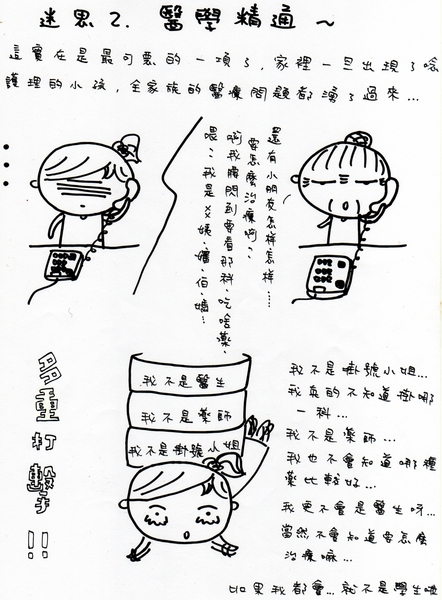 迷思2. 醫學精通～
這實在是最可悪的一項了,家裡一旦出現了唸
護理的小孩,全家族的醫療問題都湧了過來...
喂~~我是XX姨、嬸、伯、嬸…
啊我腰閃到要看那科、吃啥藥、
要怎麼治療啊??
還有小朋友怎樣怎樣……
我不是醫生
我不是藥師
我不是掛號小姐
多重打擊!!
我不是掛號小姐...
我真的不知道掛哪
一科...
我不是藥師...
我也不會知道哪種
藥比較好...
我更不會是醫生呀...
當然不會知道要怎麼
治療嘛...
如果我都會...就不是學生啦